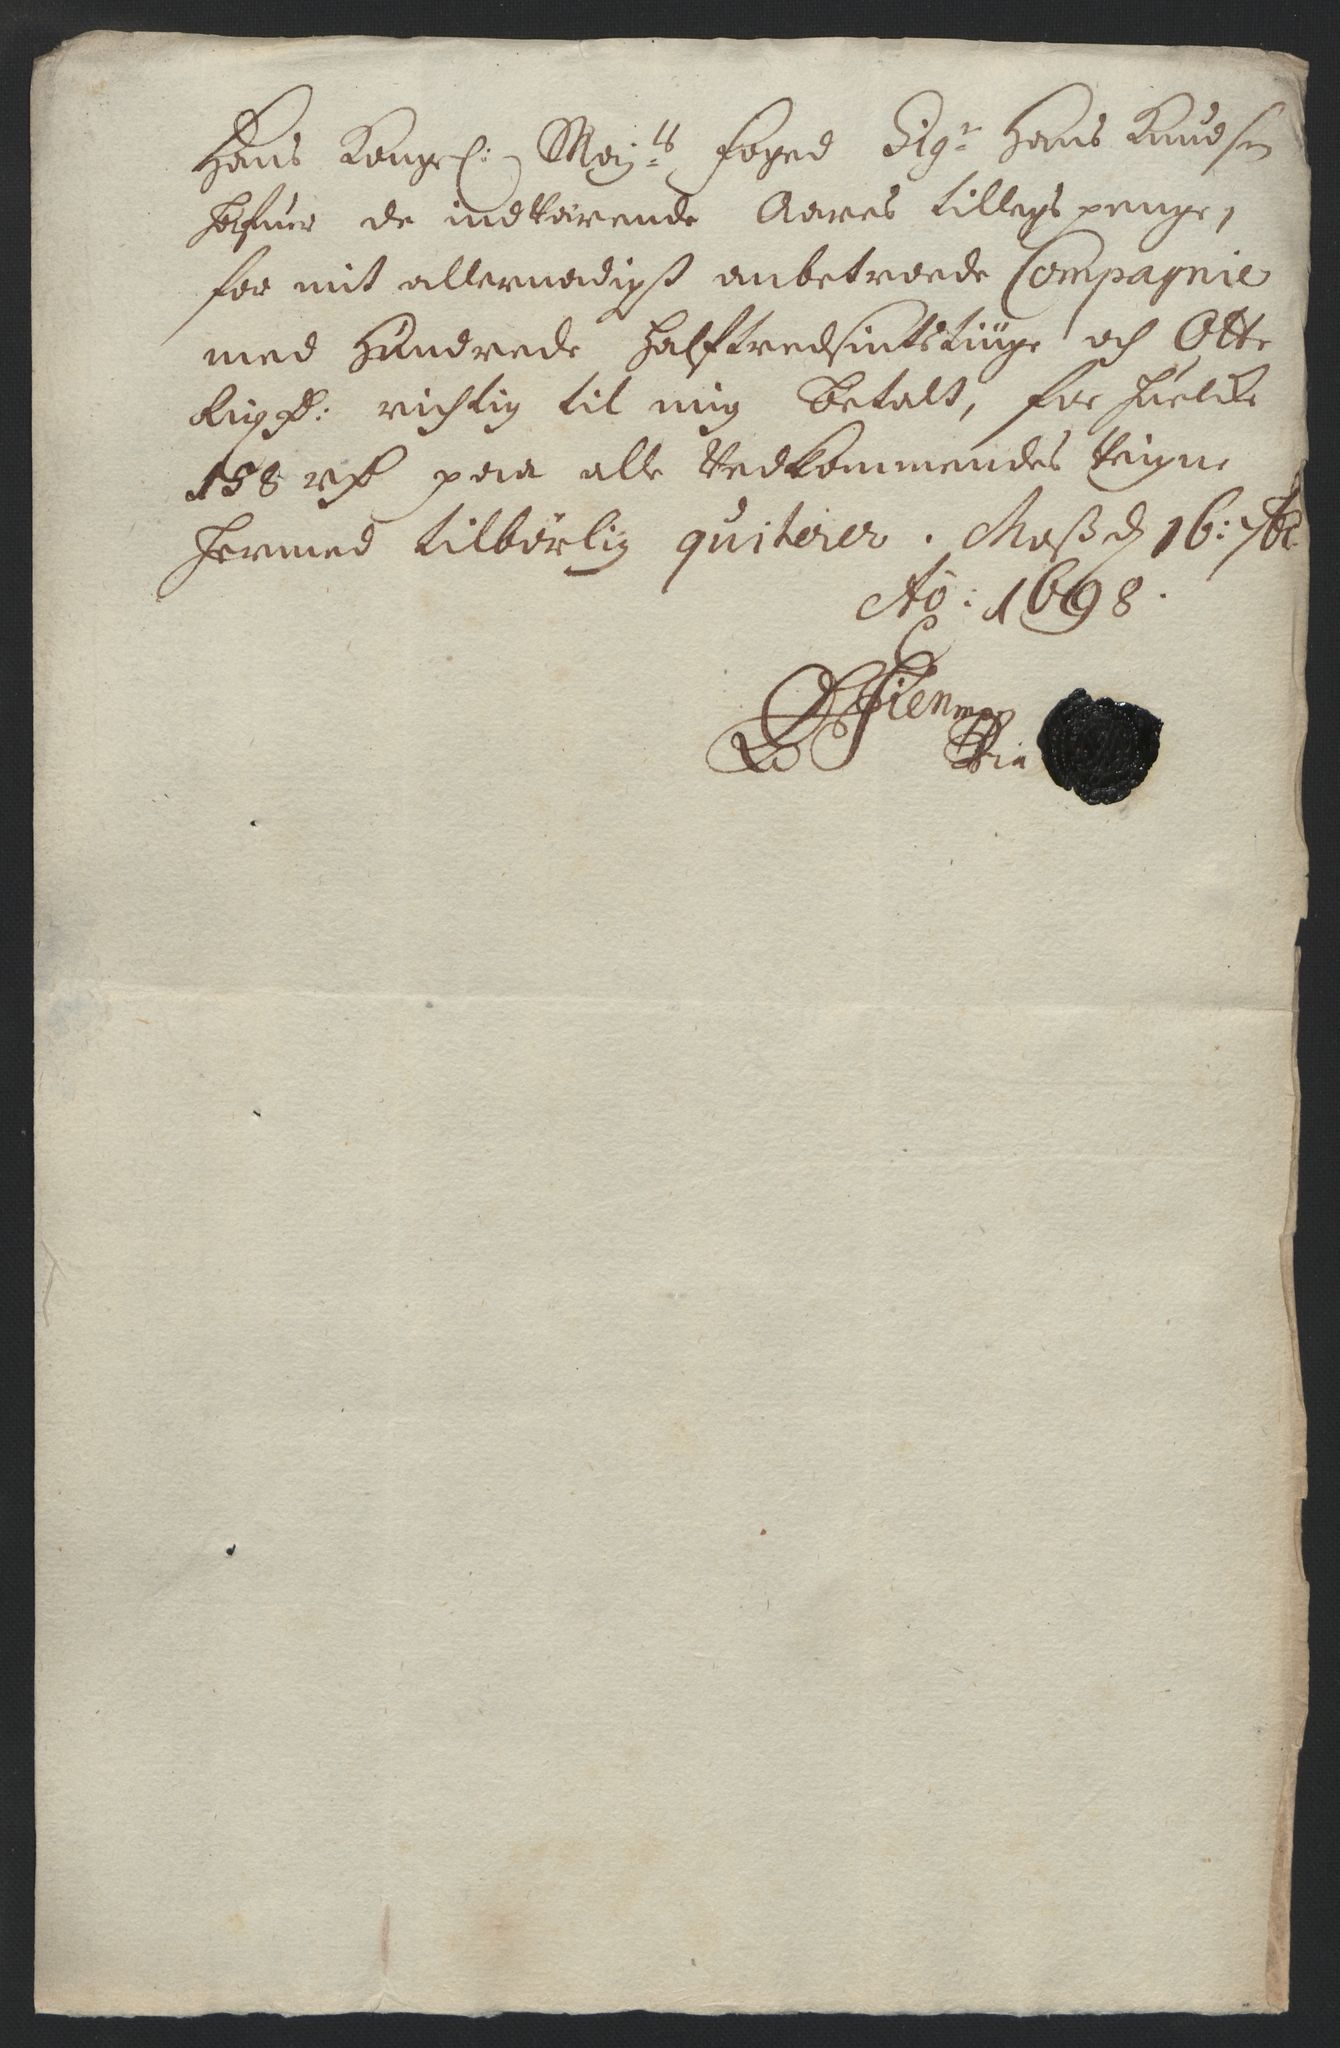 Hans Kongel: May:ts foged Sigr Hans Knudsen
hafuer de indverende Aares tillegs penge,
for mit allernadigst anbetroede Compagnie
med Hundrede halftredsintstiuge och Otte
Rigsd: richtig til mig betalt, for huelcke
158 rd paa alle Vedkommendes Veigne
hermed tilbørlig quiterer. Moss d 16: 7br
Ao: 1698.